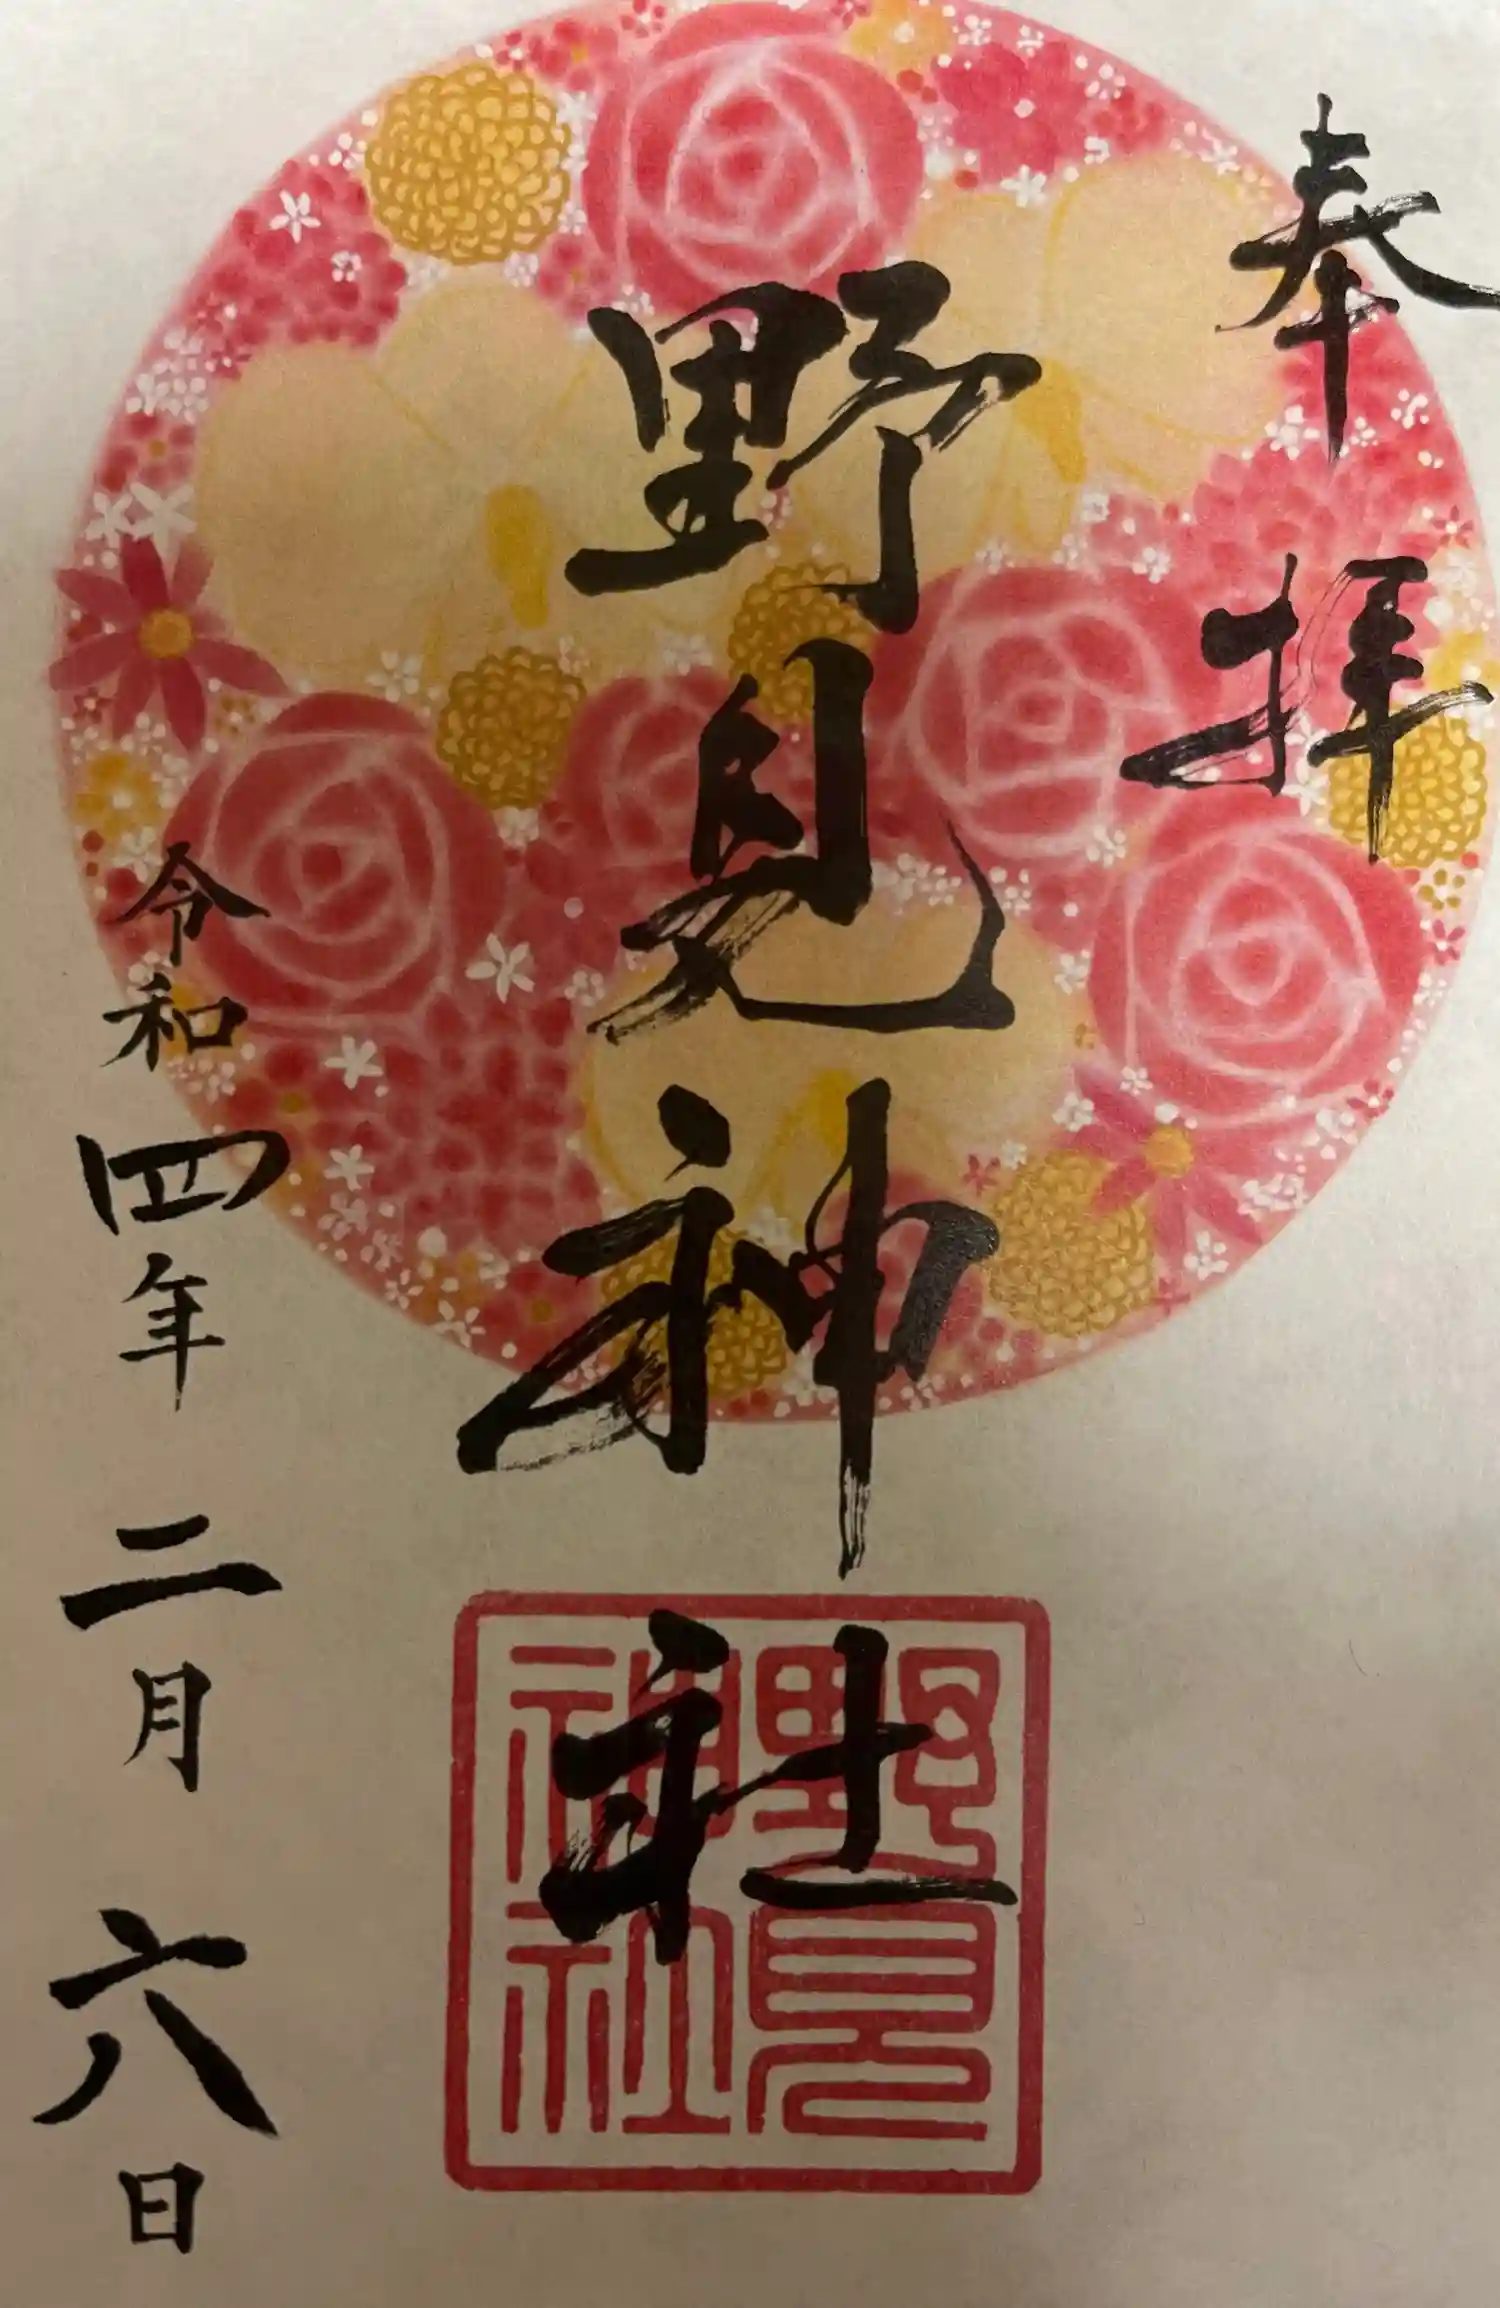 奉拝
野見神社
野見
神社
令和四年二月六日